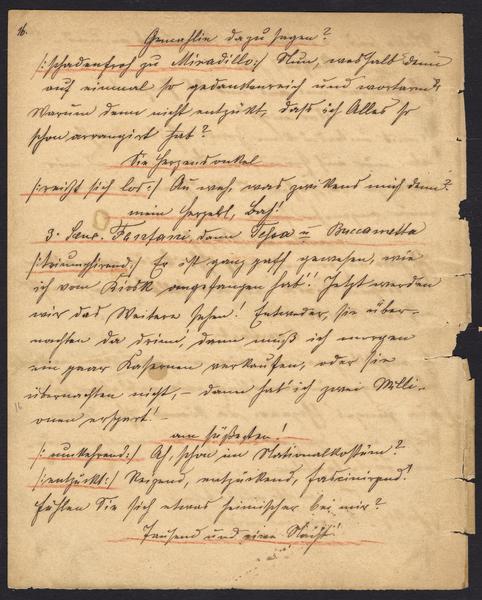 16.
Gemahlin dazu sagen?
/:schadenfroh zu Miradillo:/ Nun, weshalb denn
auf einmal so gedankenreich und wortarm?
Warum denn nicht entzückt, dass ich Alles so
schon arrangirt hab?
Sie Herzensonkel
/:reißt sich los:/ Au weh, was zwickens mich denn?
mein Herzerl, Bah!
3. Scene. Fanfani, dann Tessa u Buccametta
/:triumphirend:/ Er ist ganz paff gewesen, wie
ich vom Kiosk angefangen hab'! Jetzt werden
wir das Weitere sehen! Entweder, sie über-
nachten da drin! dann muß ich morgen
ein paar Kasernen verkaufen, oder sie
übernachten nicht, – dann hab' ich zwei Milli-
onen erspart!
16
am süßesten!
/:umkehrend:/ Ah, schon im Nationalkostüm?
/:entzückt:/ Reizend, entzückend, fascinirend!
Fühlen Sie sich etwas heimischer bei mir?
Tausend und eine Nacht!